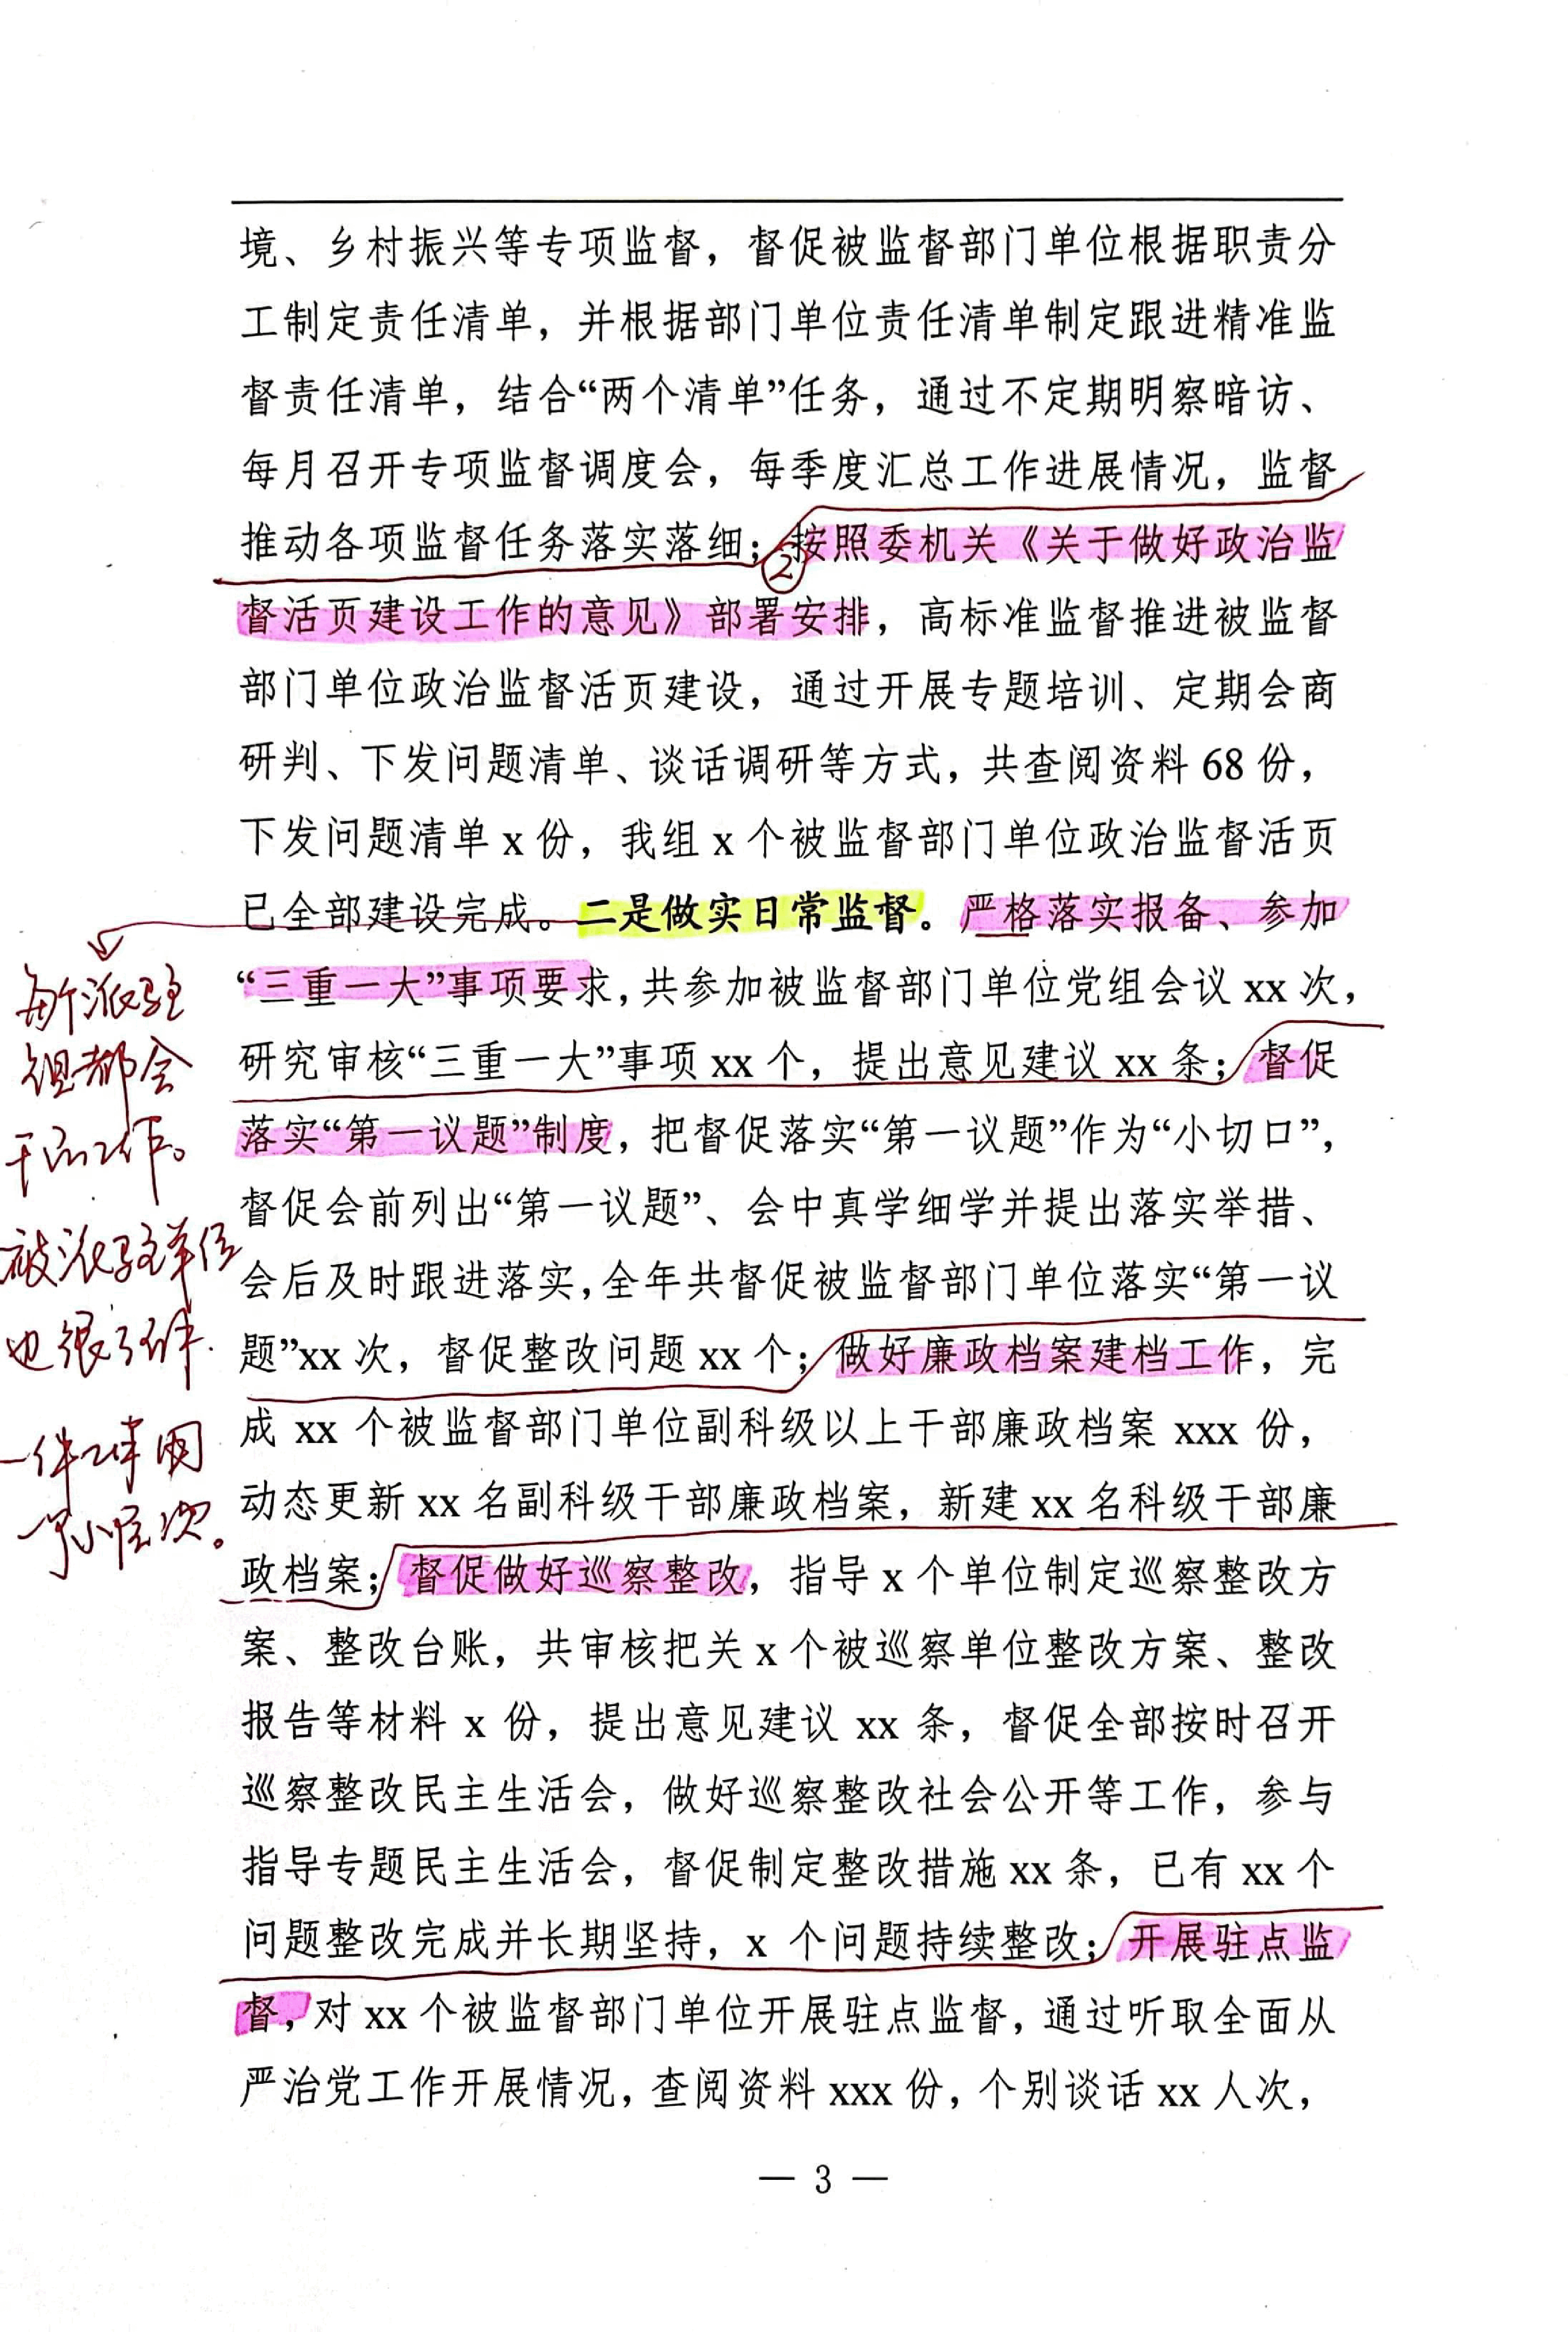 境、乡村振兴等专项监督，督促被监督部门单位根据职责分
工制定责任清单，并根据部门单位责任清单制定跟进精准监
督责任清单，结合“两个清单”任务，通过不定期明察暗访、
每月召开专项监督调度会，每季度汇总工作进展情况，监督
推动各项监督任务落实落细；②按照委机关《关于做好政治监
督活页建设工作的意见》部署安排，高标准监督推进被监督
部门单位政治监督活页建设，通过开展专题培训、定期会商
研判、下发问题清单、谈话调研等方式，共查阅资料 68 份，
下发问题清单 x 份，我组 x 个被监督部门单位政治监督活页
已全部建设完成。二是做实日常监督。严格落实报备、参加
“三重一大”事项要求，共参加被监督部门单位党组会议 xx 次，
研究审核“三重一大”事项 xx 个，提出意见建议 xx 条；督促
落实“第一议题”制度，把督促落实“第一议题”作为“小切口”，
督促会前列出“第一议题”、会中真学细学并提出落实举措、
会后及时跟进落实，全年共督促被监督部门单位落实“第一议
题”xx 次，督促整改问题 xx 个；做好廉政档案建档工作，完
成 xx 个被监督部门单位副科级以上干部廉政档案 xxx 份，
动态更新 xx 名副科级干部廉政档案，新建 xx 名科级干部廉
政档案；督促做好巡察整改，指导 x 个单位制定巡察整改方
案、整改台账，共审核把关 x 个被巡察单位整改方案、整改
报告等材料 x 份，提出意见建议 xx 条，督促全部按时召开
巡察整改民主生活会，做好巡察整改社会公开等工作，参与
指导专题民主生活会，督促制定整改措施 xx 条，已有 xx 个
问题整改完成并长期坚持，x 个问题持续整改；开展驻点监
督，对 xx 个被监督部门单位开展驻点监督，通过听取全面从
严治党工作开展情况，查阅资料 xxx 份，个别谈话 xx 人次，
— 3 —
每个派驻
组都会
干的工作。
被派驻单位
也很了解.
一件工作用
一个小层次。